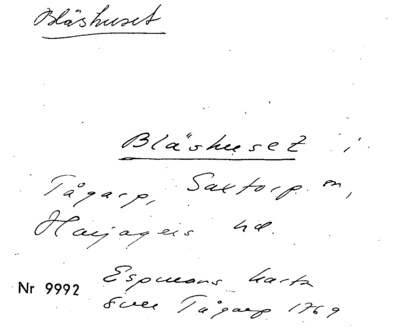 Blåshuset
Blåshuset i
Tågarp, Saxtorp sn,
Harjagers hd.
Espmans karta
över Tågarp 1769
Nr 9992